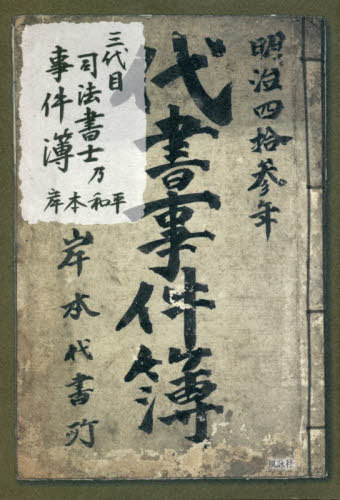 明治四拾参年
代書事件簿
岸本代書所
三代目
司法書士乃
事件簿
岸本和平
風詠社